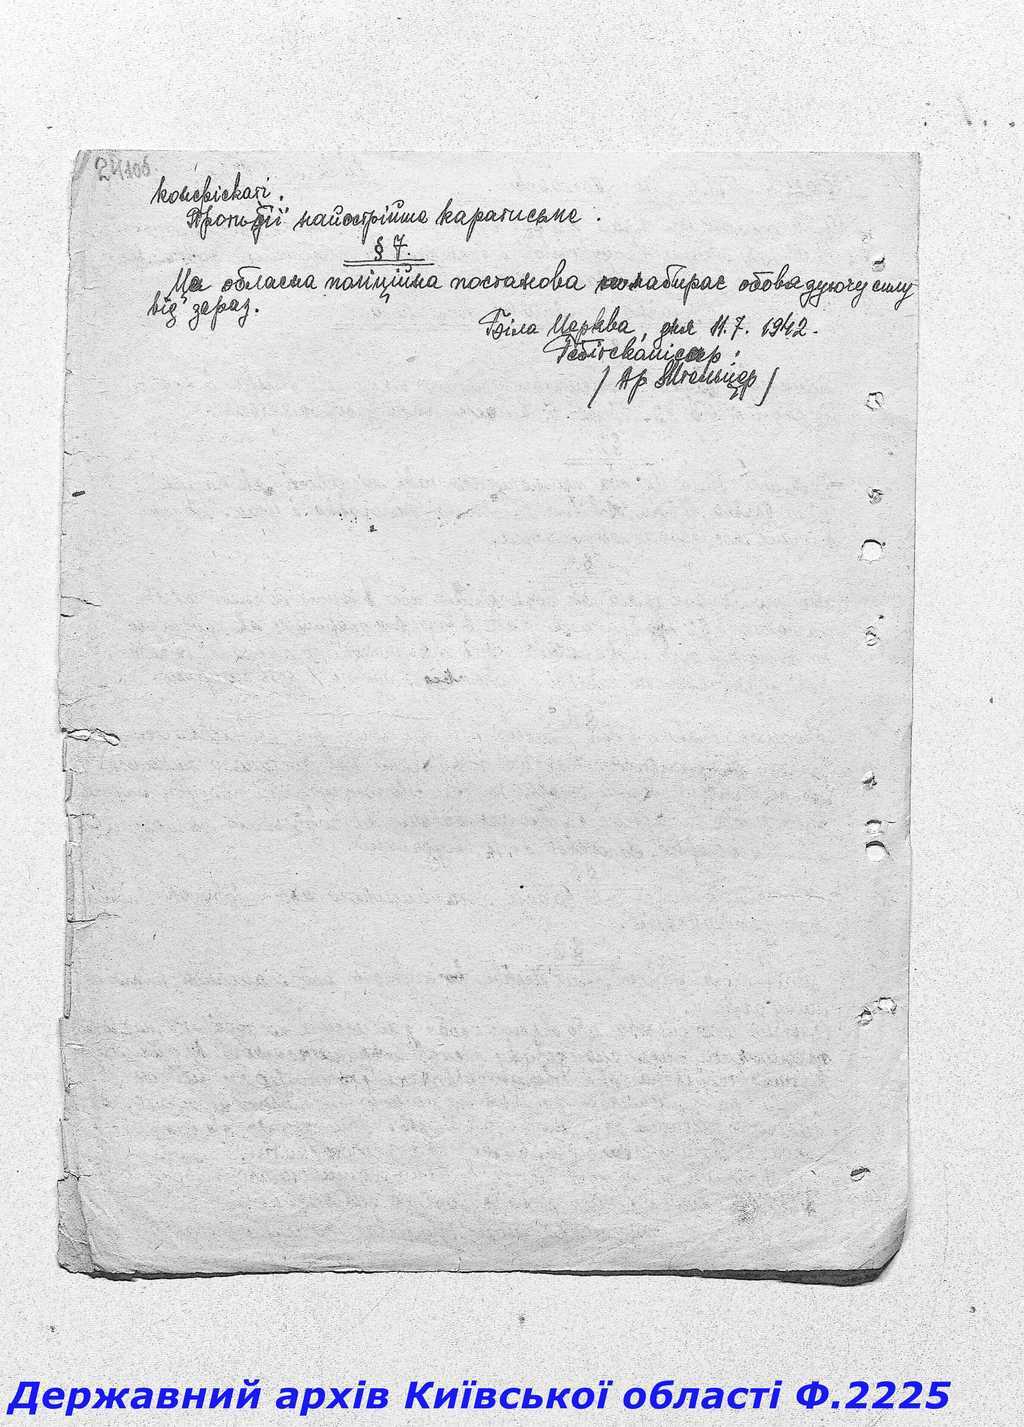 24 108
конфіскаті.
Протидії найострійше каратисьме.
§ 7.
Ця обласна поліційна постанова набирає обовядуючу силу
від зараз.
Біла Церква, дня 11.7.1942.
Гебітскомісар:
/ Др Штельцер /
Державний архів Київської області Ф.2225